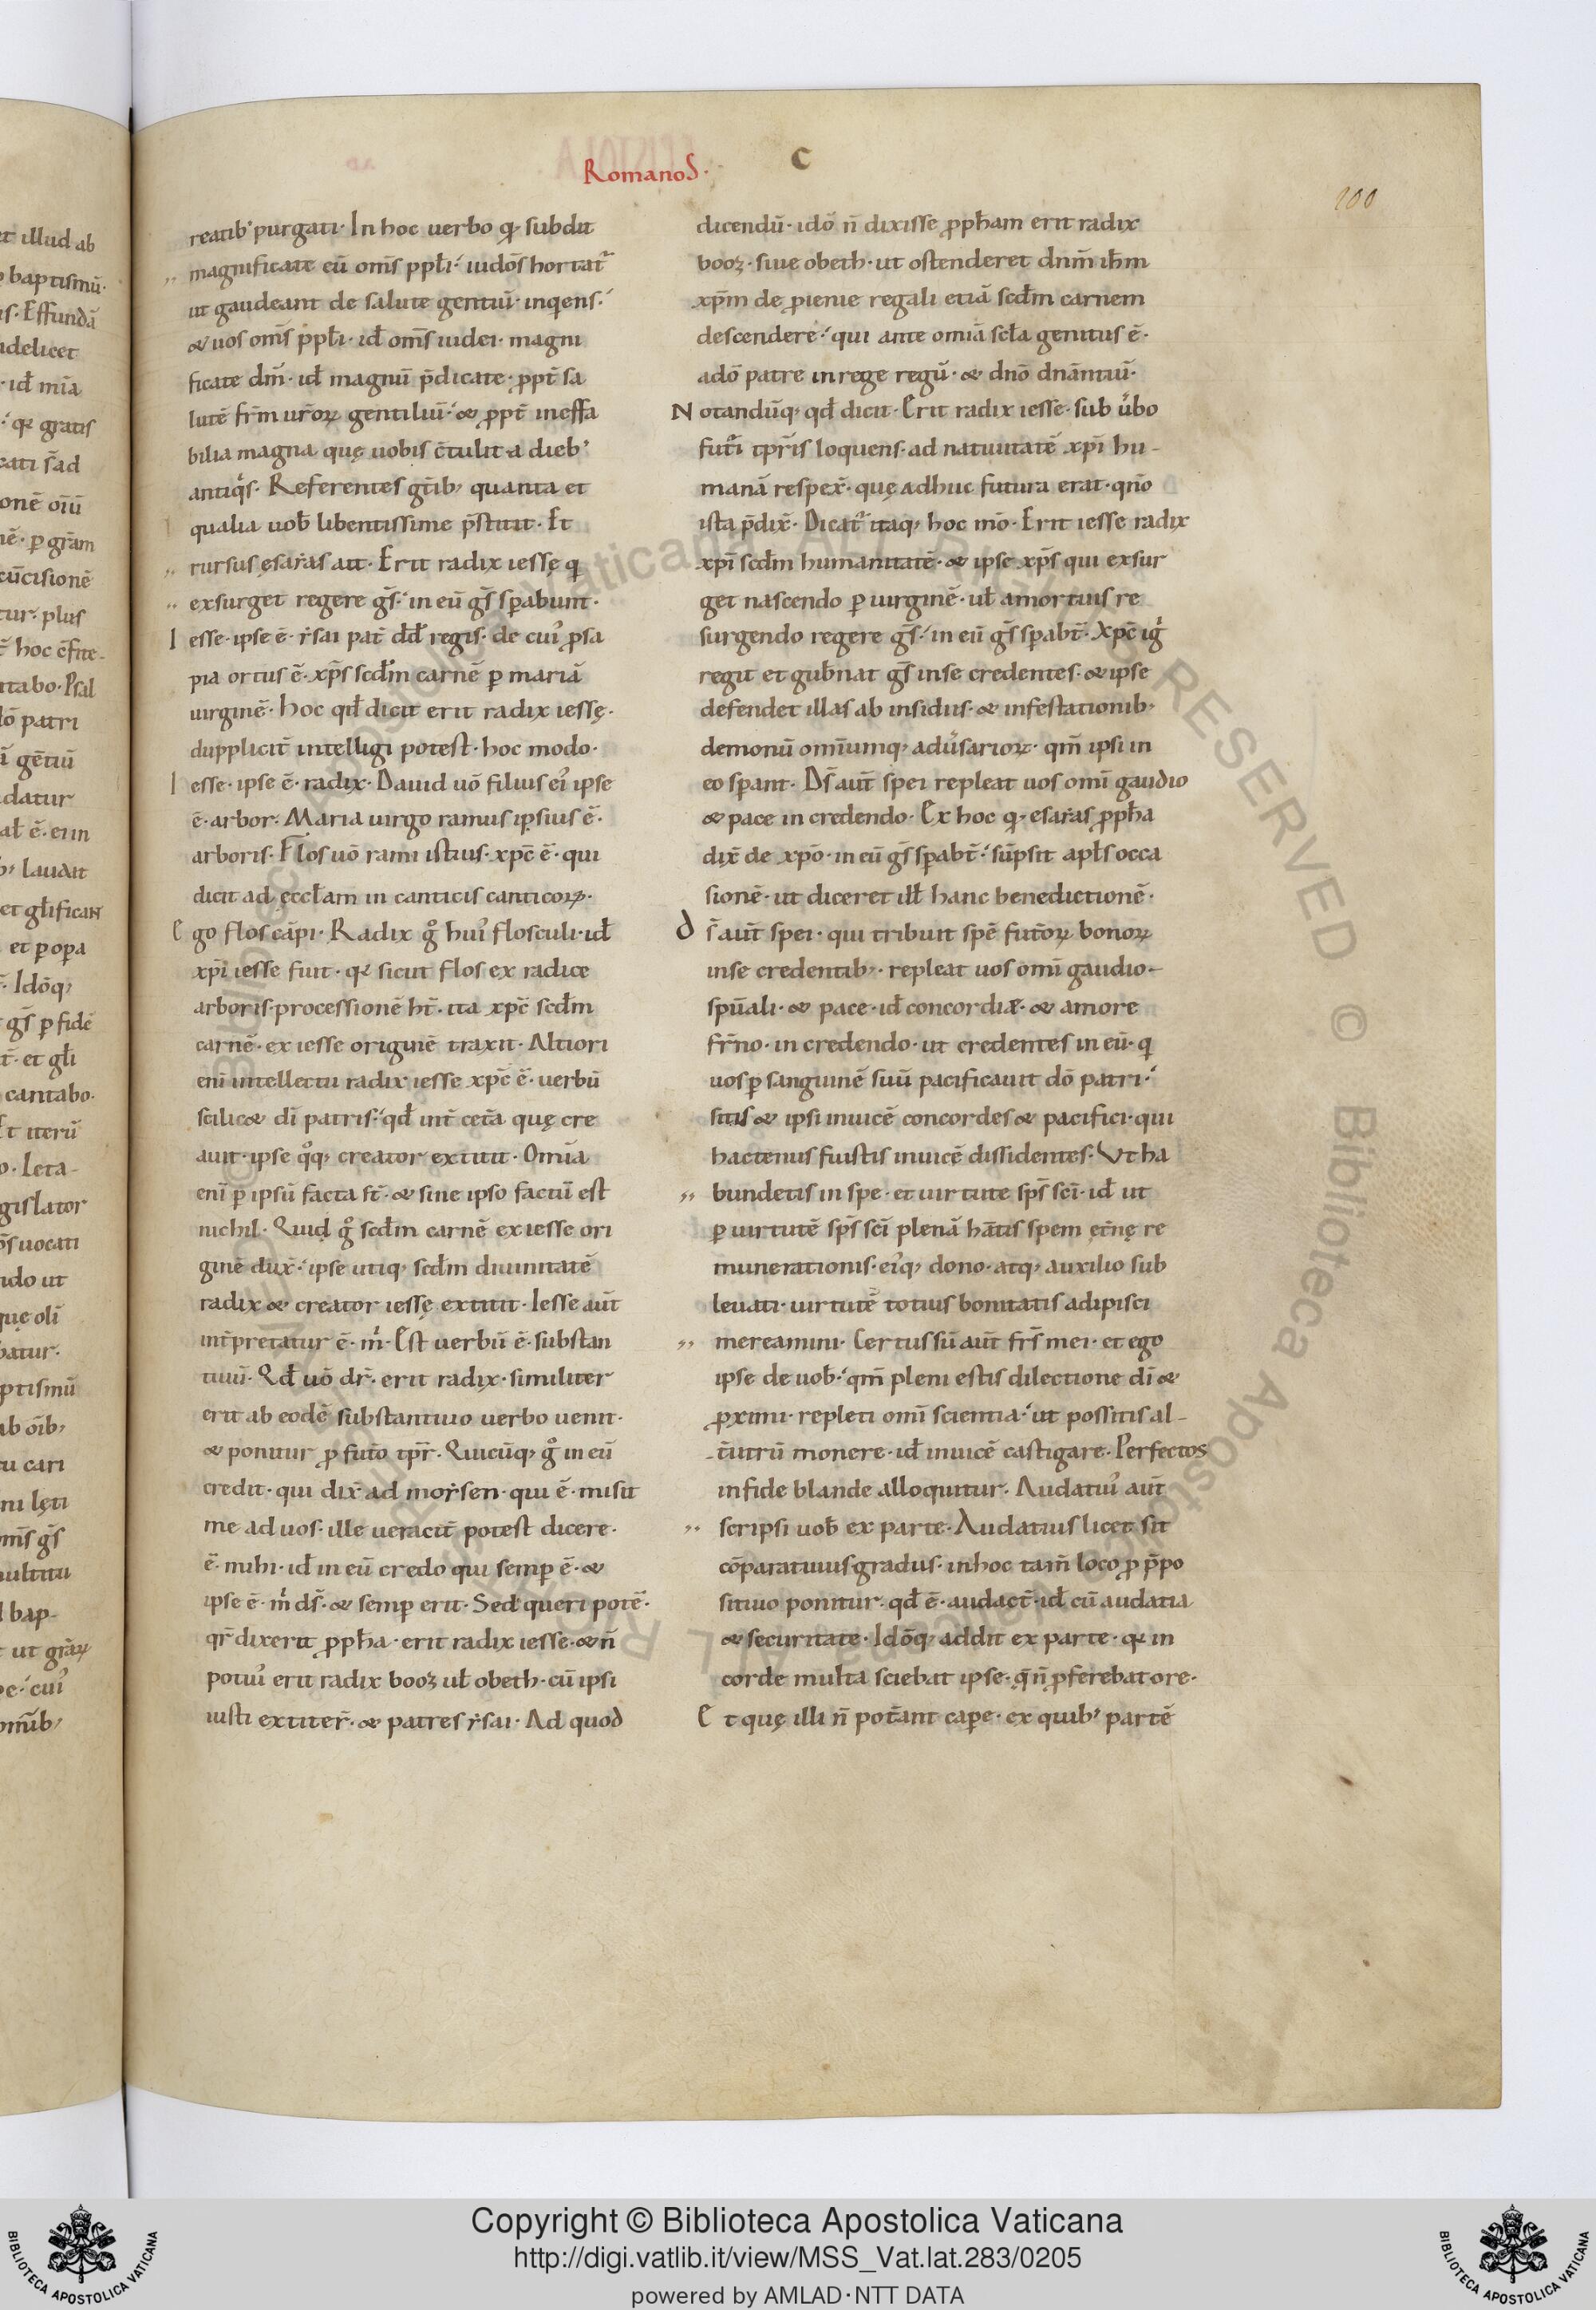 Romanos.
C
100
reatib' purgati. In hoc uerbo q subdit
magnificate eū om̄s ppłi. iudōs hortat᷑
ut gaudeant de salute gentiū. inqens.
& uos om̄s ppłi. id om̄s iudei. magni
ficate dm̄. id magnū p̄dicate. ppt̄ sa
lutē fr̄m ur̄oꝝ gentiliū. & ppt̄ ineffa
bilia magna quę uobis c̄tulit a dieb'
antiqs. Referentes gtib; quanta et
qualia uob libentissime p̄stitit. Et
rursus ęsaias ait. Erit radix iessę q
exsurget regere gs̄. in eū gs̄ sꝑabunt.
Iesse. ipse ē. ẏsai pat̄ dd̄ regis. de cui' ꝓsa
pia ortus ē. xp̄s scd̄m carnē ꝑ mariā
uirginē. Hoc qd̄ dicit erit radix iessę.
dupplicit̄ intelligi potest. hoc modo.
Iesse. ipse ē. radix. Dauid uō filius ei' ipse
ē. arbor. Maria uirgo ramus ipsius ē.
arboris. Flos uō rami istius. xpc̄ ē. qui
dicit ad ęccłam in canticis canticoꝝ.
Ego flos cāpi. Radix g̊ hui' flosculi. id
xpī iesse fuit. qꝛ sicut flos ex radice
arboris. processionē ht̄. ita xpc̄ scd̄m
carnē. ex iesse originē traxit. Altiori
enī intellectu radix iesse xpc̄ ē. uerbū
scilic& dī patris. qd̄ int̄ cet̄a quę cre
auit. ipse q̊q; creator extitit. Omīa
enī ꝑ ipsū facta st̄. & sine ipso factū est
nichil. Quid g̊ scd̄m carnē ex iesse ori
ginē dux̄. ipse utiq; scd̄m diuinitatē
radix & creator iessę extitit. Iesse aūt
int̄pretatur ē. m̄. Est uerbū ē. substan
tiuū. Qd̄ uō dr̄. erit radix. similiter
erit ab eodē substantiuo uerbo uenit.
& ponitur ꝓ futō tpr̄. Quicūq; g̊ in eū
credit. qui dix̄ ad moẏsen. qui ē. misit
me ad uos. ille ueracit̄ potest dicere.
ē. mihi. id in eū credo qui semꝑ ē. &
ipse ē. m̄ ds̄. & semꝑ erit. Sed queri potē.
qr̄ dixerit ꝓpħa. erit radix iesse. & n̄
potiu' erit radix booz uł obeth. cū ipsi
iusti extiter̄. & patres ẏsai. Ad quod
dicendū. idō n̄ dixisse ꝓpħam erit radix
booz. siue obeth. ut ostenderet dnm̄ ihm̄
xp̄m de ꝓienie regali etiā scd̄m carnem
descendere. qui ante omīa scła genitus ē.
adō patre in rege regū. & dnō dnāntiū.
Notandūq; qd̄ dicit. Erit radix iesse. sub ūbo
futi tpr̄is loquens. ad natiuitatē xpī hu-
manā respex̄. quę adhuc futura erat. qn̄o
ista p̄dix̄. Dicat᷑ itaq; hoc mō. Erit iesse radix
xpī scd̄m humanitatē. & ipse xp̄s qui exsur
get nascendo ꝑ uirginē. uł amortuis re
surgendo regere gs̄. in eū gs̄ sꝑabt̄. Xpc̄ ig
regit et gub̄nat gs̄ inse credentes. & ipse
defendet illas ab insidiis. & infestationib;
demonū omīumq; adūsarioꝝ. qm̄ ipsi in
eo sꝑant. Ds̄ aūt spei repleat uos omī gaudio
& pace in credendo. Ex hoc q. esaias ꝓpħa
dix̄ de xpō. in eū gs̄ sꝑabt̄. sūpsit apłs occa
sionē. ut diceret ilł hanc benedictionē.
ds̄ aūt spei. qui tribuit spē futōꝝ bonoꝝ
inse credentib;. repleat uos omī gaudio-
spūali. & pace. id concordia. & amore
fr̄no. in credendo. ut credentes in eū. q
uos ꝑ sanguinē suū pacificauit dō patri.
sitis & ipsi inuicē concordes & pacifici. qui
hactenus fuistis inuicē dissidentes. Ut ha
bundetis in spe. et uirtute sps̄ scī. id ut
ꝑ uirtutē sps̄ scī plenā hātis spem ęt̄nę re
munerationis. ei'q; dono. atq; auxilio sub
leuati. uirtutē totius bonitatis adipisci
mereamini. Certus sū aūt frs̄ mei. et ego
ipse de uob. qm̄ pleni estis dilectione dī &
ꝓximi. repleti omī scientia. ut possitis al-
t̄utrū monere. id inuicē castigare. Perfectos
in fide blande alloquitur. Audatiu' aūt
scripsi uob ex parte. Audatius licet sit
cōparatiuus gradus. in hoc tam̄ loco ꝓ p̄po
sitiuo ponitur. qd̄ ē. audact̄. id cū audatia
& securitate. Idōq; addit ex parte. qꝛ in
corde multa sciebat ipse. q̄ n̄ ꝓferebat ore.
Et quę illi n̄ pot̄ant caꝑe. ex quib; partē
Copyright © Biblioteca Apostolica Vaticana
http://digi.vatlib.it/view/MSS_Vat.lat.283/0205
powered by AMLAD·NTT DATA
BIBLIOTECA APOSTOLICA VATICANA
BIBLIOTECA APOSTOLICA VATICANA